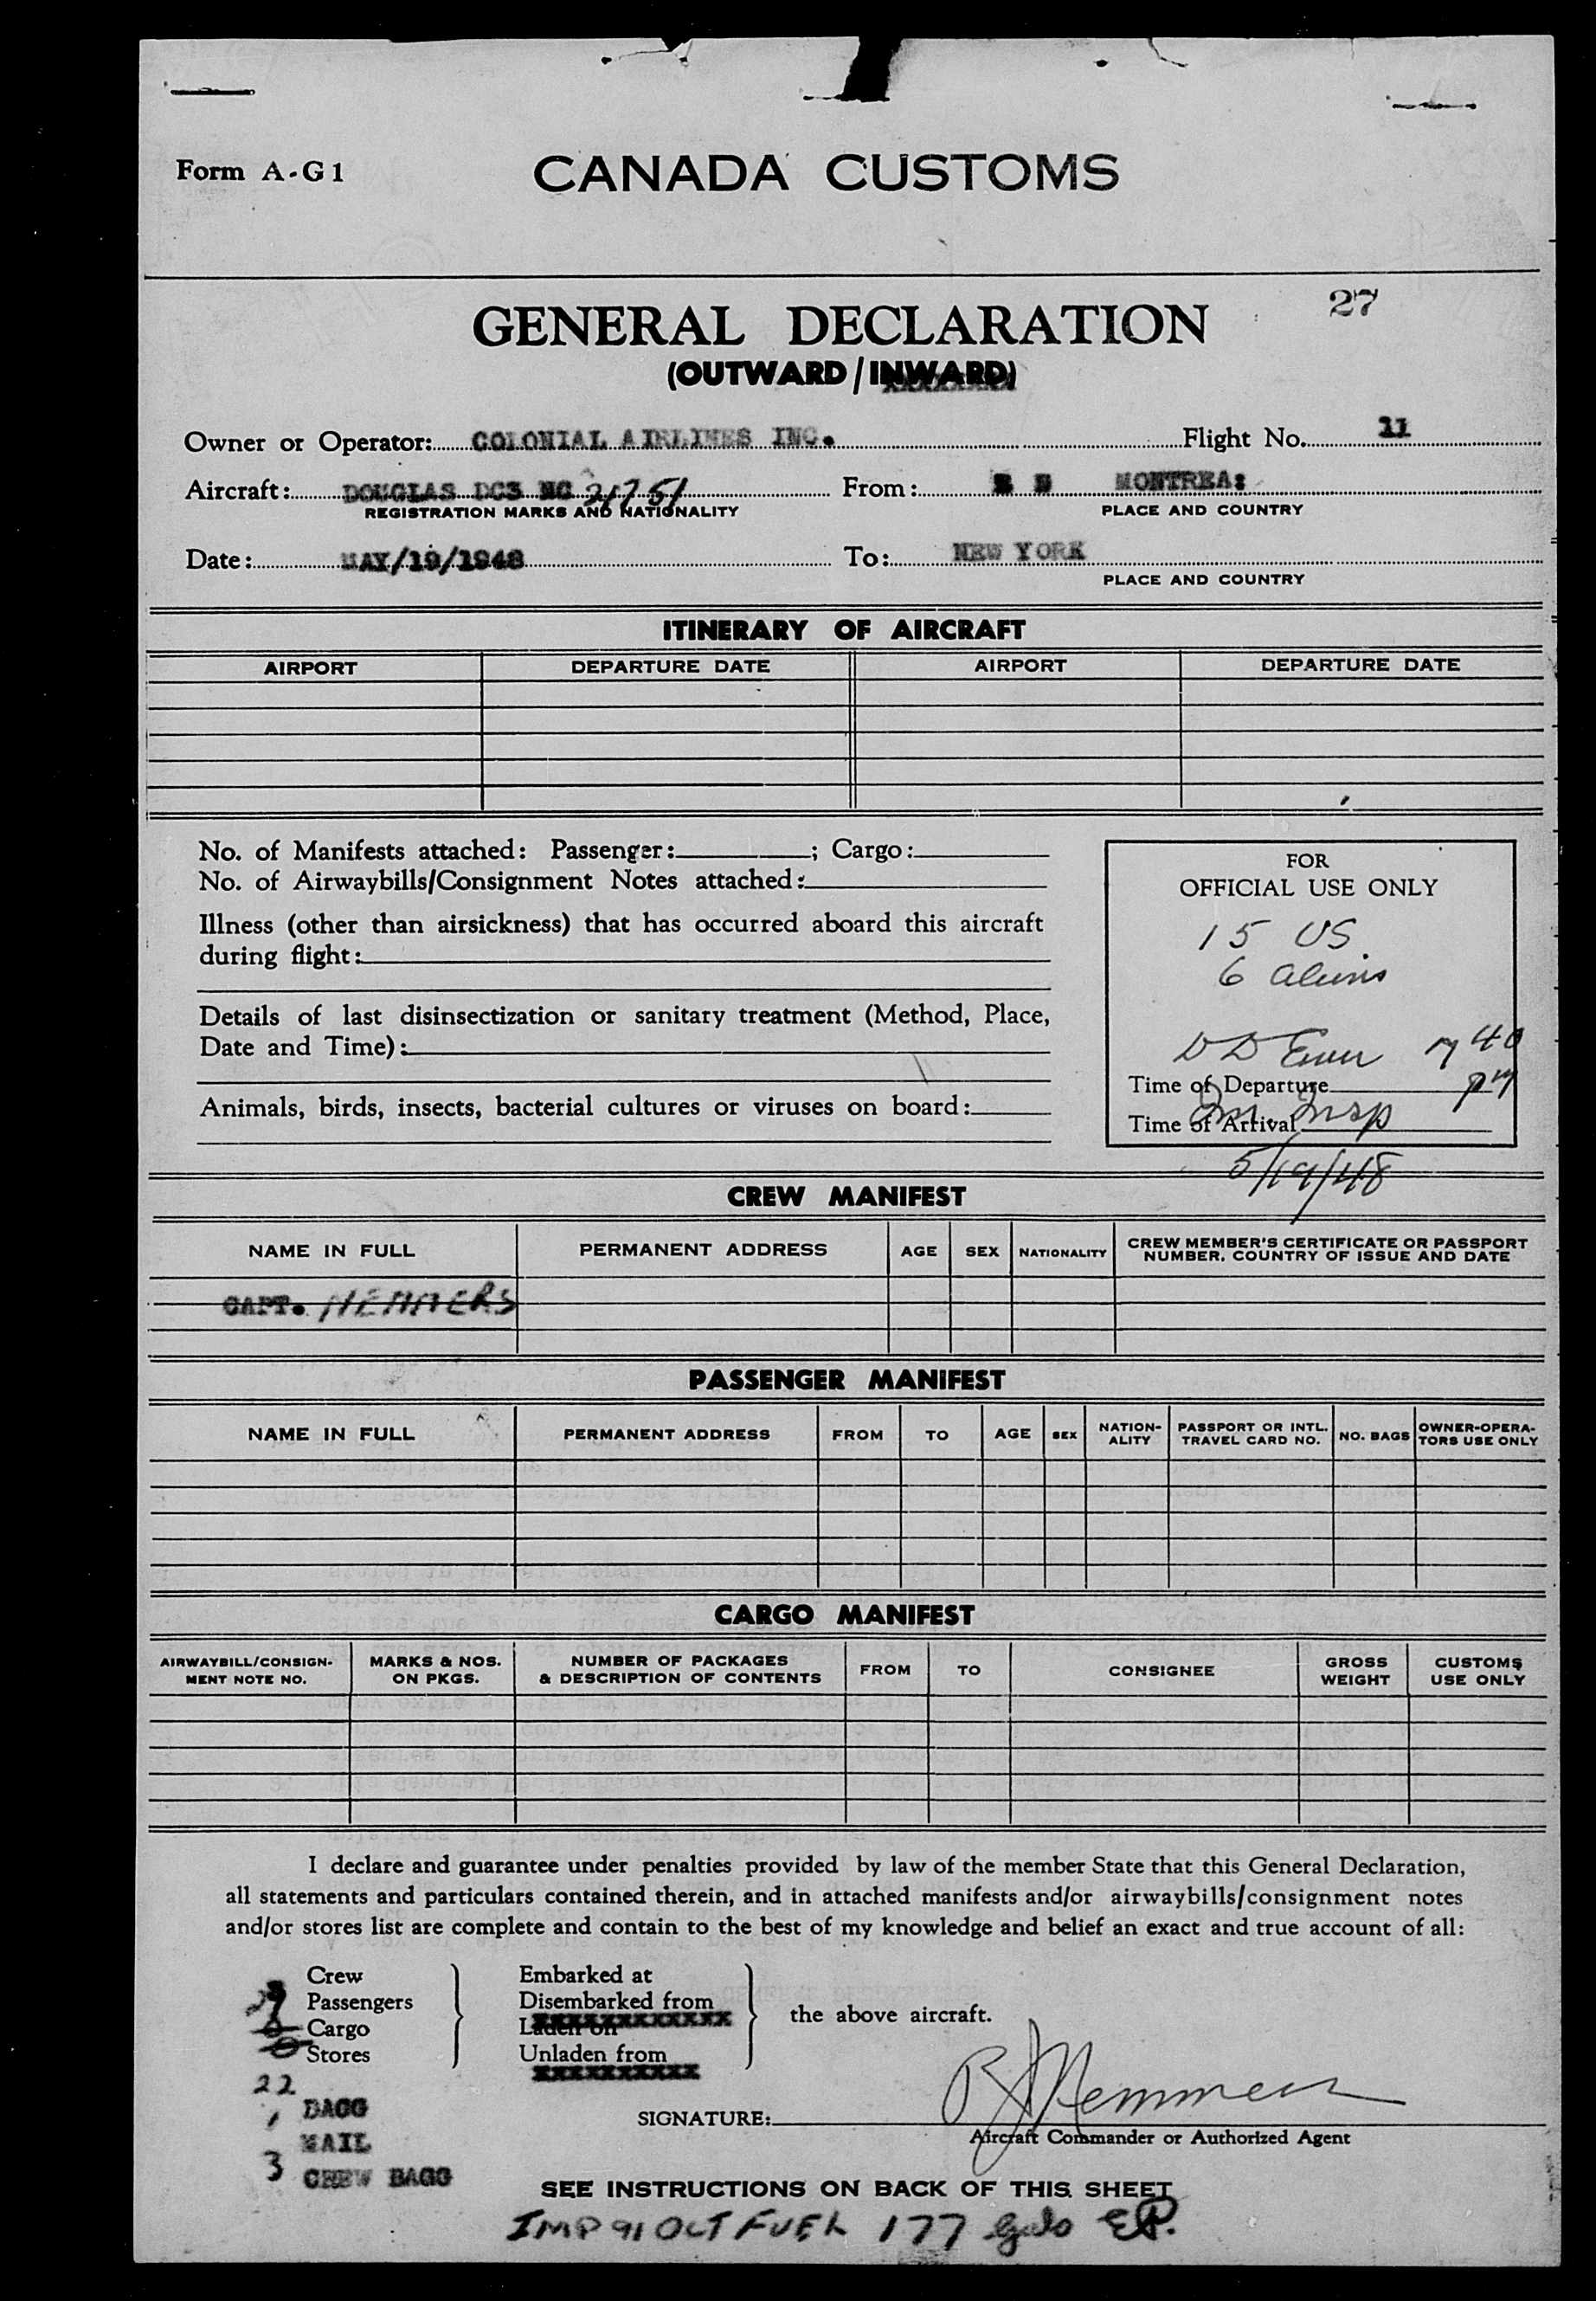 Form A-G1
CANADA CUSTOMS
27
GENERAL DECLARATION
(OUTWARD/INWARD)
Owner or Operator: COLONIAL AIRLINES INC. Flight No. 11
Aircraft: DOUGLAS DC3 NC 21751 From: MONTREA:
REGISTRATION MARKS AND NATIONALITY PLACE AND COUNTRY
Date: MAY/19/1948 To: NEW YORK
PLACE AND COUNTRY
ITINERARY OF AIRCRAFT
AIRPORT DEPARTURE DATE AIRPORT DEPARTURE DATE
No. of Manifests attached: Passenger: ; Cargo:
No. of Airwaybills/Consignment Notes attached:
Illness (other than airsickness) that has occurred aboard this aircraft
during flight:
Details of last disinsectization or sanitary treatment (Method, Place,
Date and Time):
Animals, birds, insects, bacterial cultures or viruses on board:
FOR
OFFICIAL USE ONLY
15 US
6 aliens
7 40
Time of Departure pm
Time of Arrival
Im Insp
5/19/48
CREW MANIFEST
NAME IN FULL PERMANENT ADDRESS AGE SEX NATIONALITY CREW MEMBER'S CERTIFICATE OR PASSPORT NUMBER, COUNTRY OF ISSUE AND DATE
CAPT. NEMMERS
PASSENGER MANIFEST
NAME IN FULL PERMANENT ADDRESS FROM TO AGE SEX NATION-ALITY PASSPORT OR INTL. TRAVEL CARD NO. NO. BAGS OWNER-OPERA-TORS USE ONLY
CARGO MANIFEST
AIRWAYBILL/CONSIGN-MENT NOTE NO. MARKS & NOS. ON PKGS. NUMBER OF PACKAGES & DESCRIPTION OF CONTENTS FROM TO CONSIGNEE GROSS WEIGHT CUSTOMS USE ONLY
I declare and guarantee under penalties provided by law of the member State that this General Declaration,
all statements and particulars contained therein, and in attached manifests and/or airwaybills/consignment notes
and/or stores list are complete and contain to the best of my knowledge and belief an exact and true account of all:
Crew Embarked at
Passengers Disembarked from
the above aircraft.
0 Cargo Laden on
0 Stores Unladen from
22
BAGG
MAIL
3 CREW BAGG
SIGNATURE: R J Nemmers
Aircraft Commander or Authorized Agent
SEE INSTRUCTIONS ON BACK OF THIS SHEET
IMP 91 OCT FUEL 177 Gals EP.